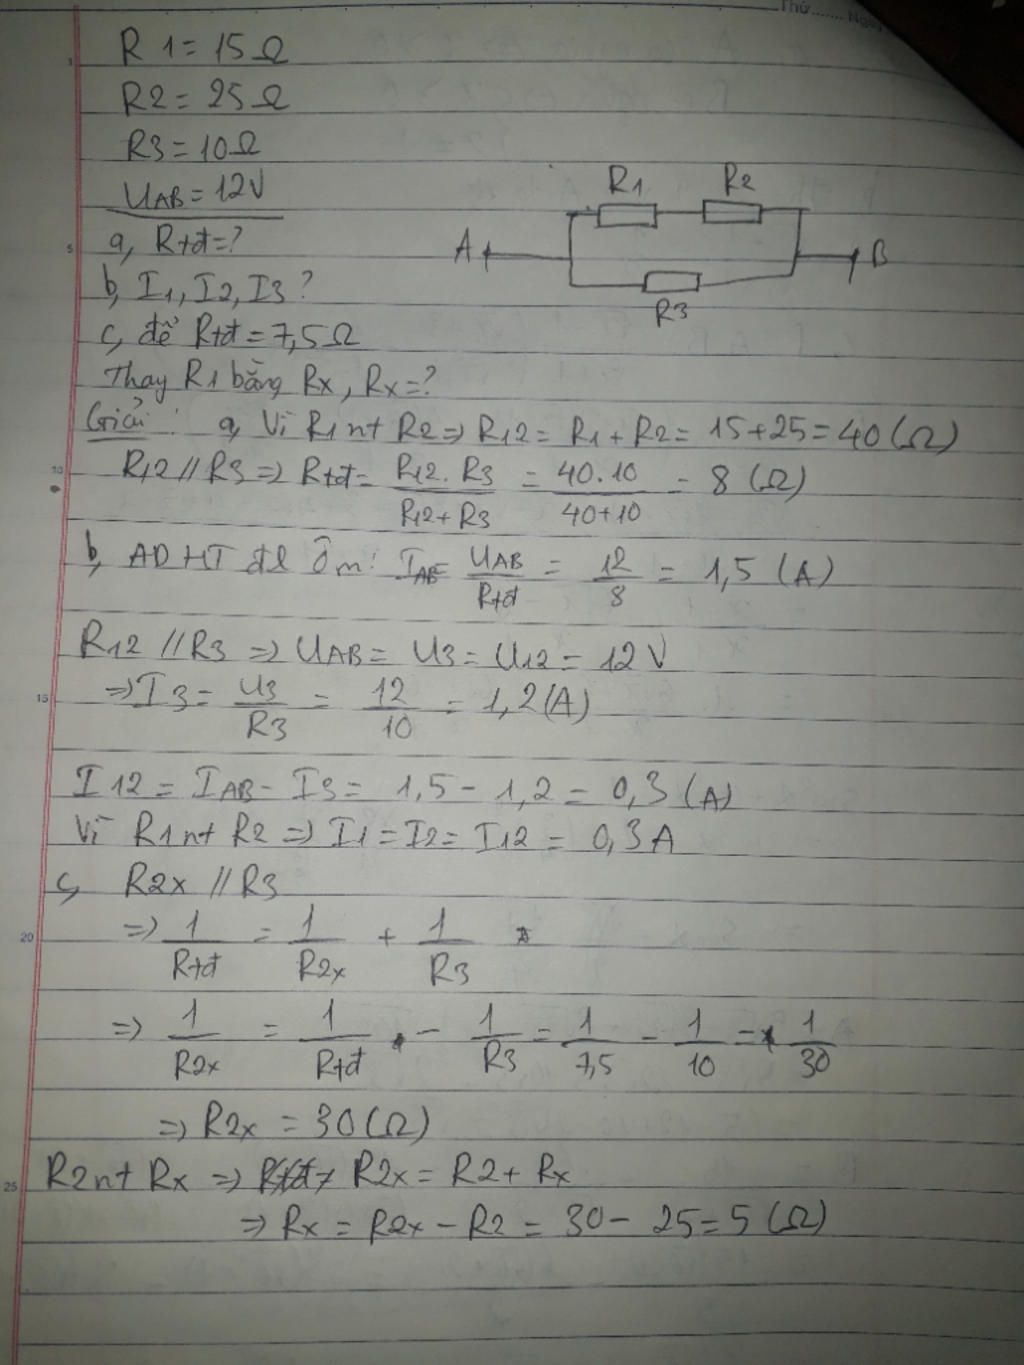 Thứ....... Ngày
R1 = 15Ω
R2 = 25Ω
R3 = 10Ω
UAB = 12V
R1 R2
A B
R3
a, Rtđ=?
b, I1, I2, I3?
c, để Rtđ = 7,5Ω
Thay R1 bằng Rx, Rx=?
Giải: a, Vì R1 nt R2 => R12 = R1 + R2 = 15+25 = 40 (Ω)
R12 // R3 => Rtđ = R12. R3 / R12 + R3 = 40.10 / 40+10 = 8 (Ω)
b, ADHT đl Ôm: IAB = UAB / Rtđ = 12 / 8 = 1,5 (A)
R12 // R3 => UAB = U3 = U12 = 12V
=> I3 = U3 / R3 = 12 / 10 = 1,2 (A)
I12 = IAB - I3 = 1,5 - 1,2 = 0,3 (A)
Vì R1 nt R2 => I1 = I2 = I12 = 0,3A
c, R2x // R3
=> 1 / Rtđ = 1 / R2x + 1 / R3
=> 1 / R2x = 1 / Rtđ - 1 / R3 = 1 / 7,5 - 1 / 10 = 1 / 30
=> R2x = 30 (Ω)
R2 nt Rx => R2x = R2 + Rx
=> Rx = R2x - R2 = 30 - 25 = 5 (Ω)
5
10
15
20
25